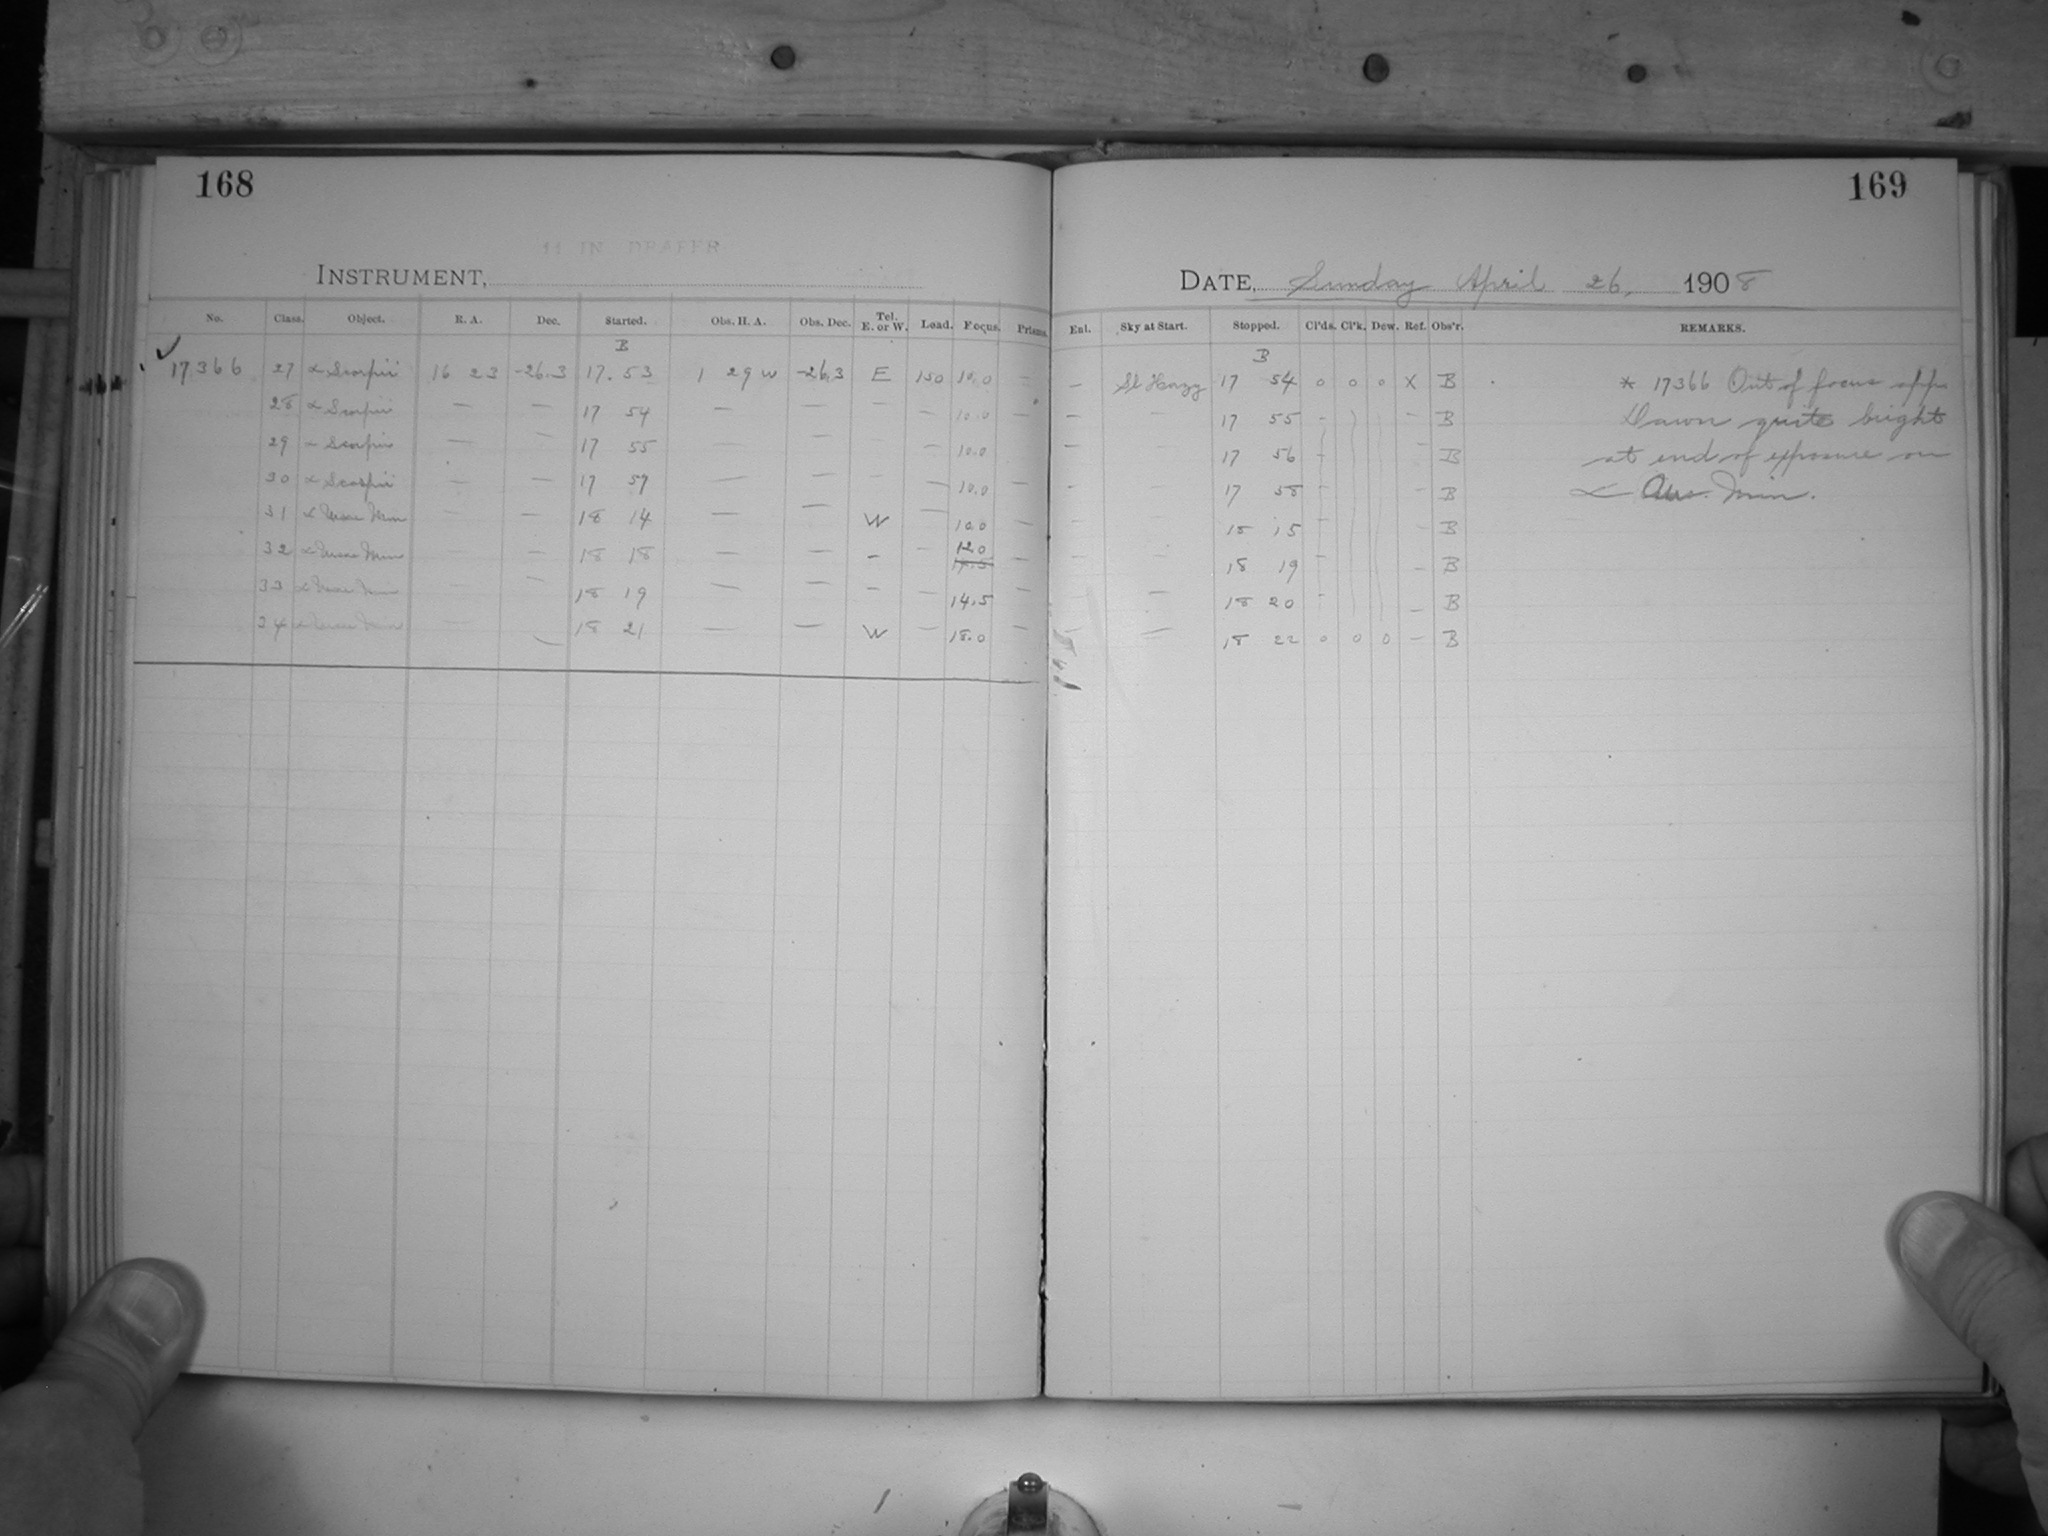 168
169
11 IN DRAPER
INSTRUMENT,
DATE, Sunday April 26, 1908
No. Class. Object. R. A. Dec. Started. Obs. H. A. Obs. Dec. Tel. E. or W. Load. Focus. Prisms. Enl. Sky at Start. Stopped. Cl'ds. Cl'k. Dew. Ref. Obs'r. REMARKS.
B B
✓ 17366 27 α Scorpii 16 23 -26.3 17.53 1 29 W -26.3 E 150 10.0 — — Sl Hazy 17 54 0 0 0 X B * 17366 Out of focus
28 α Scorpii — — 17 54 — — — — 10.0 — — — 17 55 - - B Dawn quite bright
29 α Scorpii — — 17 55 — — — — 10.0 — — — 17 56 - - B at end of exposure on
30 α Scorpii — — 17 57 — — — — 10.0 — — — 17 58 - - B α Urs. Min.
31 α Ursae Min — — 18 14 — — W — 10.0 — — — 18 15 - - B
32 α Ursae Min — — 18 18 — — - 12.0 — — — 18 19 - - B
33 α Ursae Min — — 18 19 — — - — 14.5 — — — 18 20 - - B
34 α Ursae Min — — 18 21 — — W — 18.0 — — — 18 22 0 0 0 - B